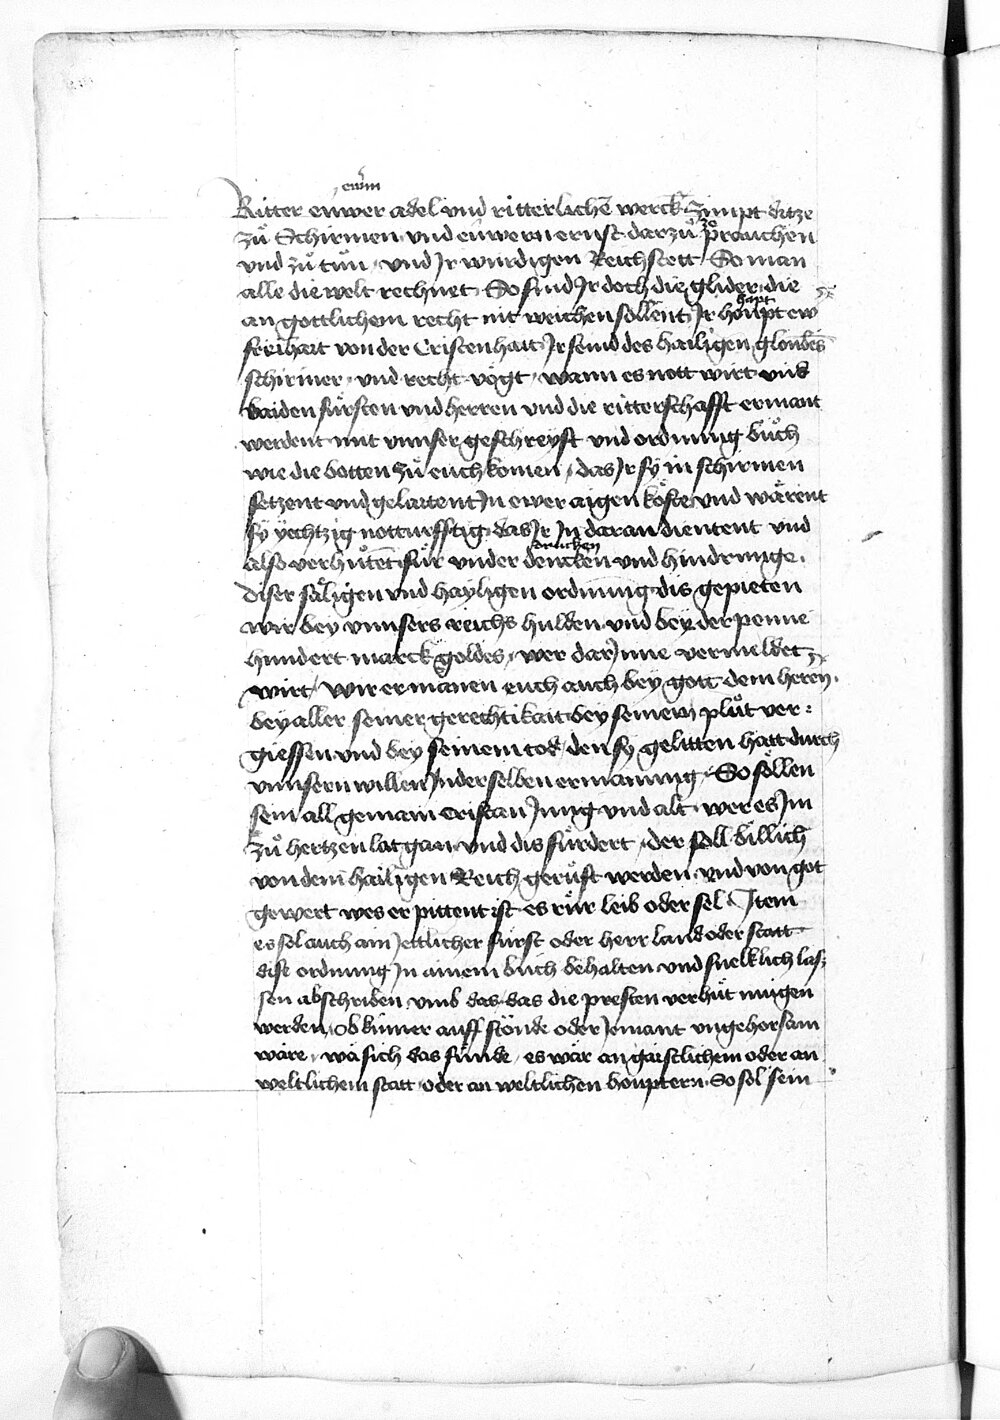 ewrm
Ritter euwer adel vnd ritterlichē werck Zimpt ditze
zů Schirmen vnd euwern ernst darzů ze prauchen
vnd zů tůn, vnd Jr wurdigen Reichstett So man
alle die welt rechnet So sind Jr doch die glider die
an gottlichem recht nit weichen sollent Jr houpt ew
hapt
freihait von der Cristenhait Jr seind des hailigen gloubēs
schirmer, vnd recht vögt, wann es nott wirt vnd
baiden fürsten vnd herren vnd die ritterschafft ermant
werdent mit vnnser geschreyft vnd ordnung bůch
wie die botten zů euch komen, das Jr sy in schirmen
setzent vnd gelaitent Jn ewer aigen köste vnd wärent
sy yechtzig notturfftig das Jr Jn daran dientent vnd
drucken
also verhůtēt für vnder dencken vnd hindrunge.
diser säligen vnd hayligen ordnung dis gepieten
wir bey vnnsers reichs hulden vnd bey der penne
hundert marck goldes, wer darJnne vermeldet
wirt, Wir ermanen euch auch bey gott dem heren,
bey aller seiner gerechtikait bey seinem plůt ver:
giessen vnd bey seinem tod, den sy gelitten hatt durch
vnnsern willen Jn der selben ermanung, So söllen
sein all gemain Cristan Jung vnd alt wer es Jm
zů hertzen lat gan vnd dis fürdert, der soll billich
von dem hailigen Reich gerüft werden vnd von got
gewert wes er pittent ist es rür leib oder sel Jtem
es sol auch ain Jettlicher fürst oder herr land oder statt
dise ordnung Jn ainem bůch behalten vnd snelklich las:
sen abschriben vmb das das die presten verhůt mügen
werden, ob kimer auff stönde oder Jemant vngehorsam
wäre, wa sich das fünde, es wär an gaistlichem oder an
weltlichem statt oder an weltlichen houptern So sol sein